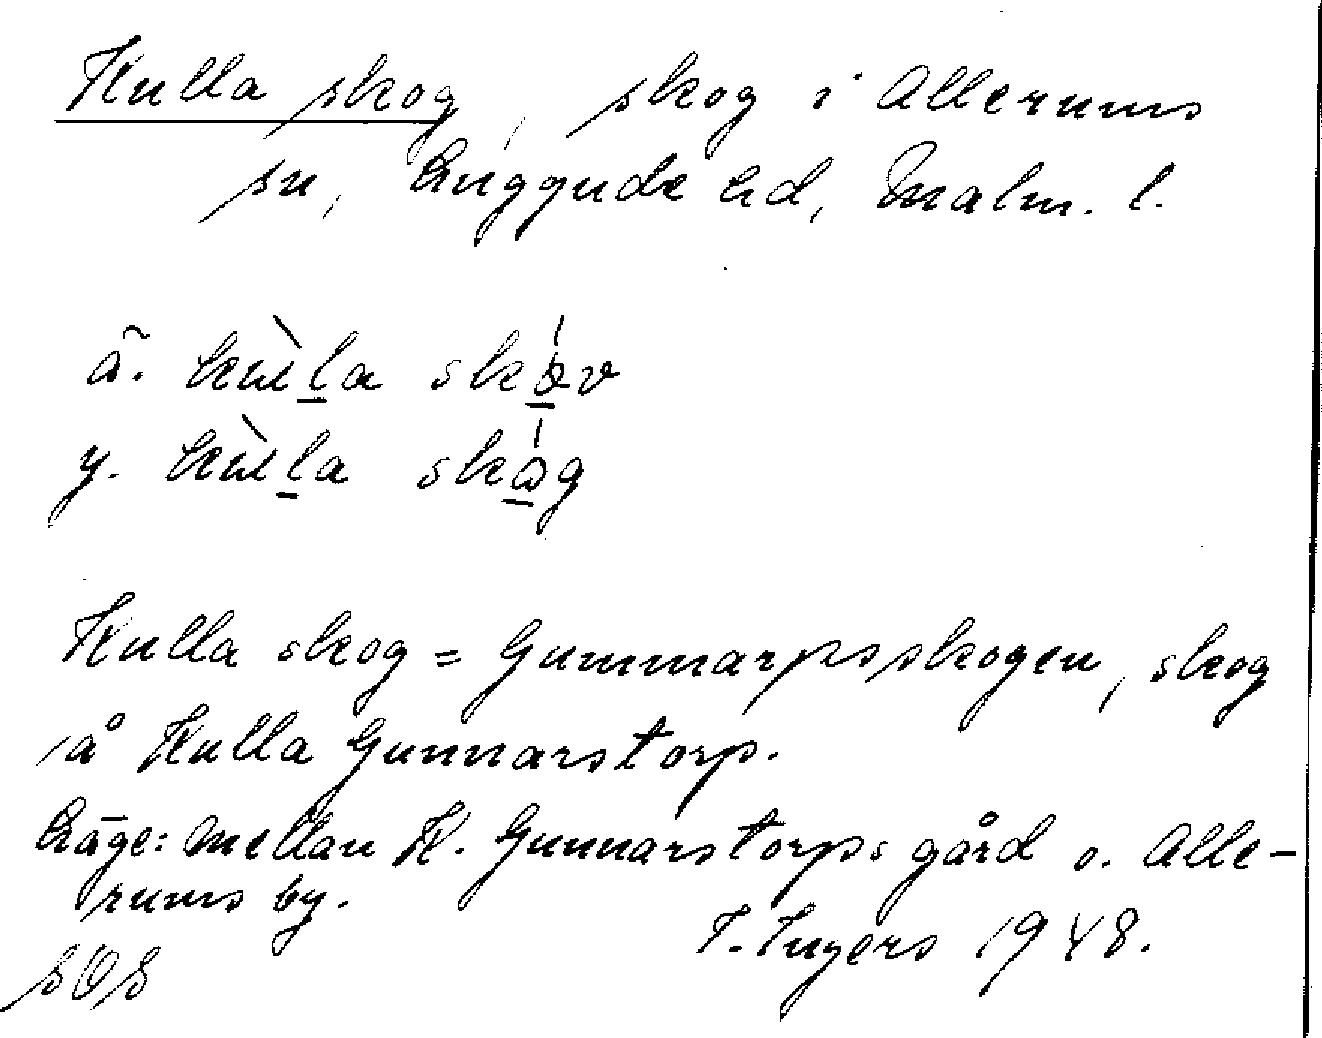 Kulla skog, skog i Allerums
sn, Luggude hd, Malm. l.
ä. kùl̲a skǻ̲v
y. kùl̲a skǻ̲g
Kulla skog = Gunnarpsskogen, skog
på Kulla Gunnarstorp.
Läge: mellan K. Gunnarstorps gård o. Alle-
rums by.
I. Ingers 1948.
SOS